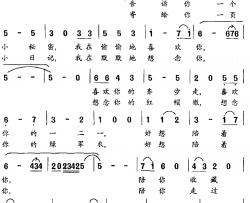 告诉你一个
寄给你一页
5 - 5 | 3 0 3 3 5 5 5 | 5 6 - | 6 - 676
小秘密，我在偷偷地喜欢你，
小日记，我在默默地想念你，
5 - - 5 | 6 6 4 3 2 2 | 5 - 2 | 0 5 5
喜欢你的齐步走，喜欢
想念你的红帽徽，想念
6 - 7 | - 1 2 2 | 2 - 1 2 3 | 3 1 7 7
你的一二一，好想陪着
你的绿军衣，好想陪着
6 - 434 | 2023425 5 - | 5 - 712 | 1 2 1
你，陪你收藏
你，陪你走过